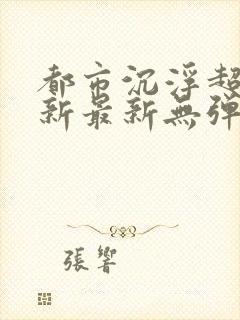 都市沉浮超
新最新無弹
張響